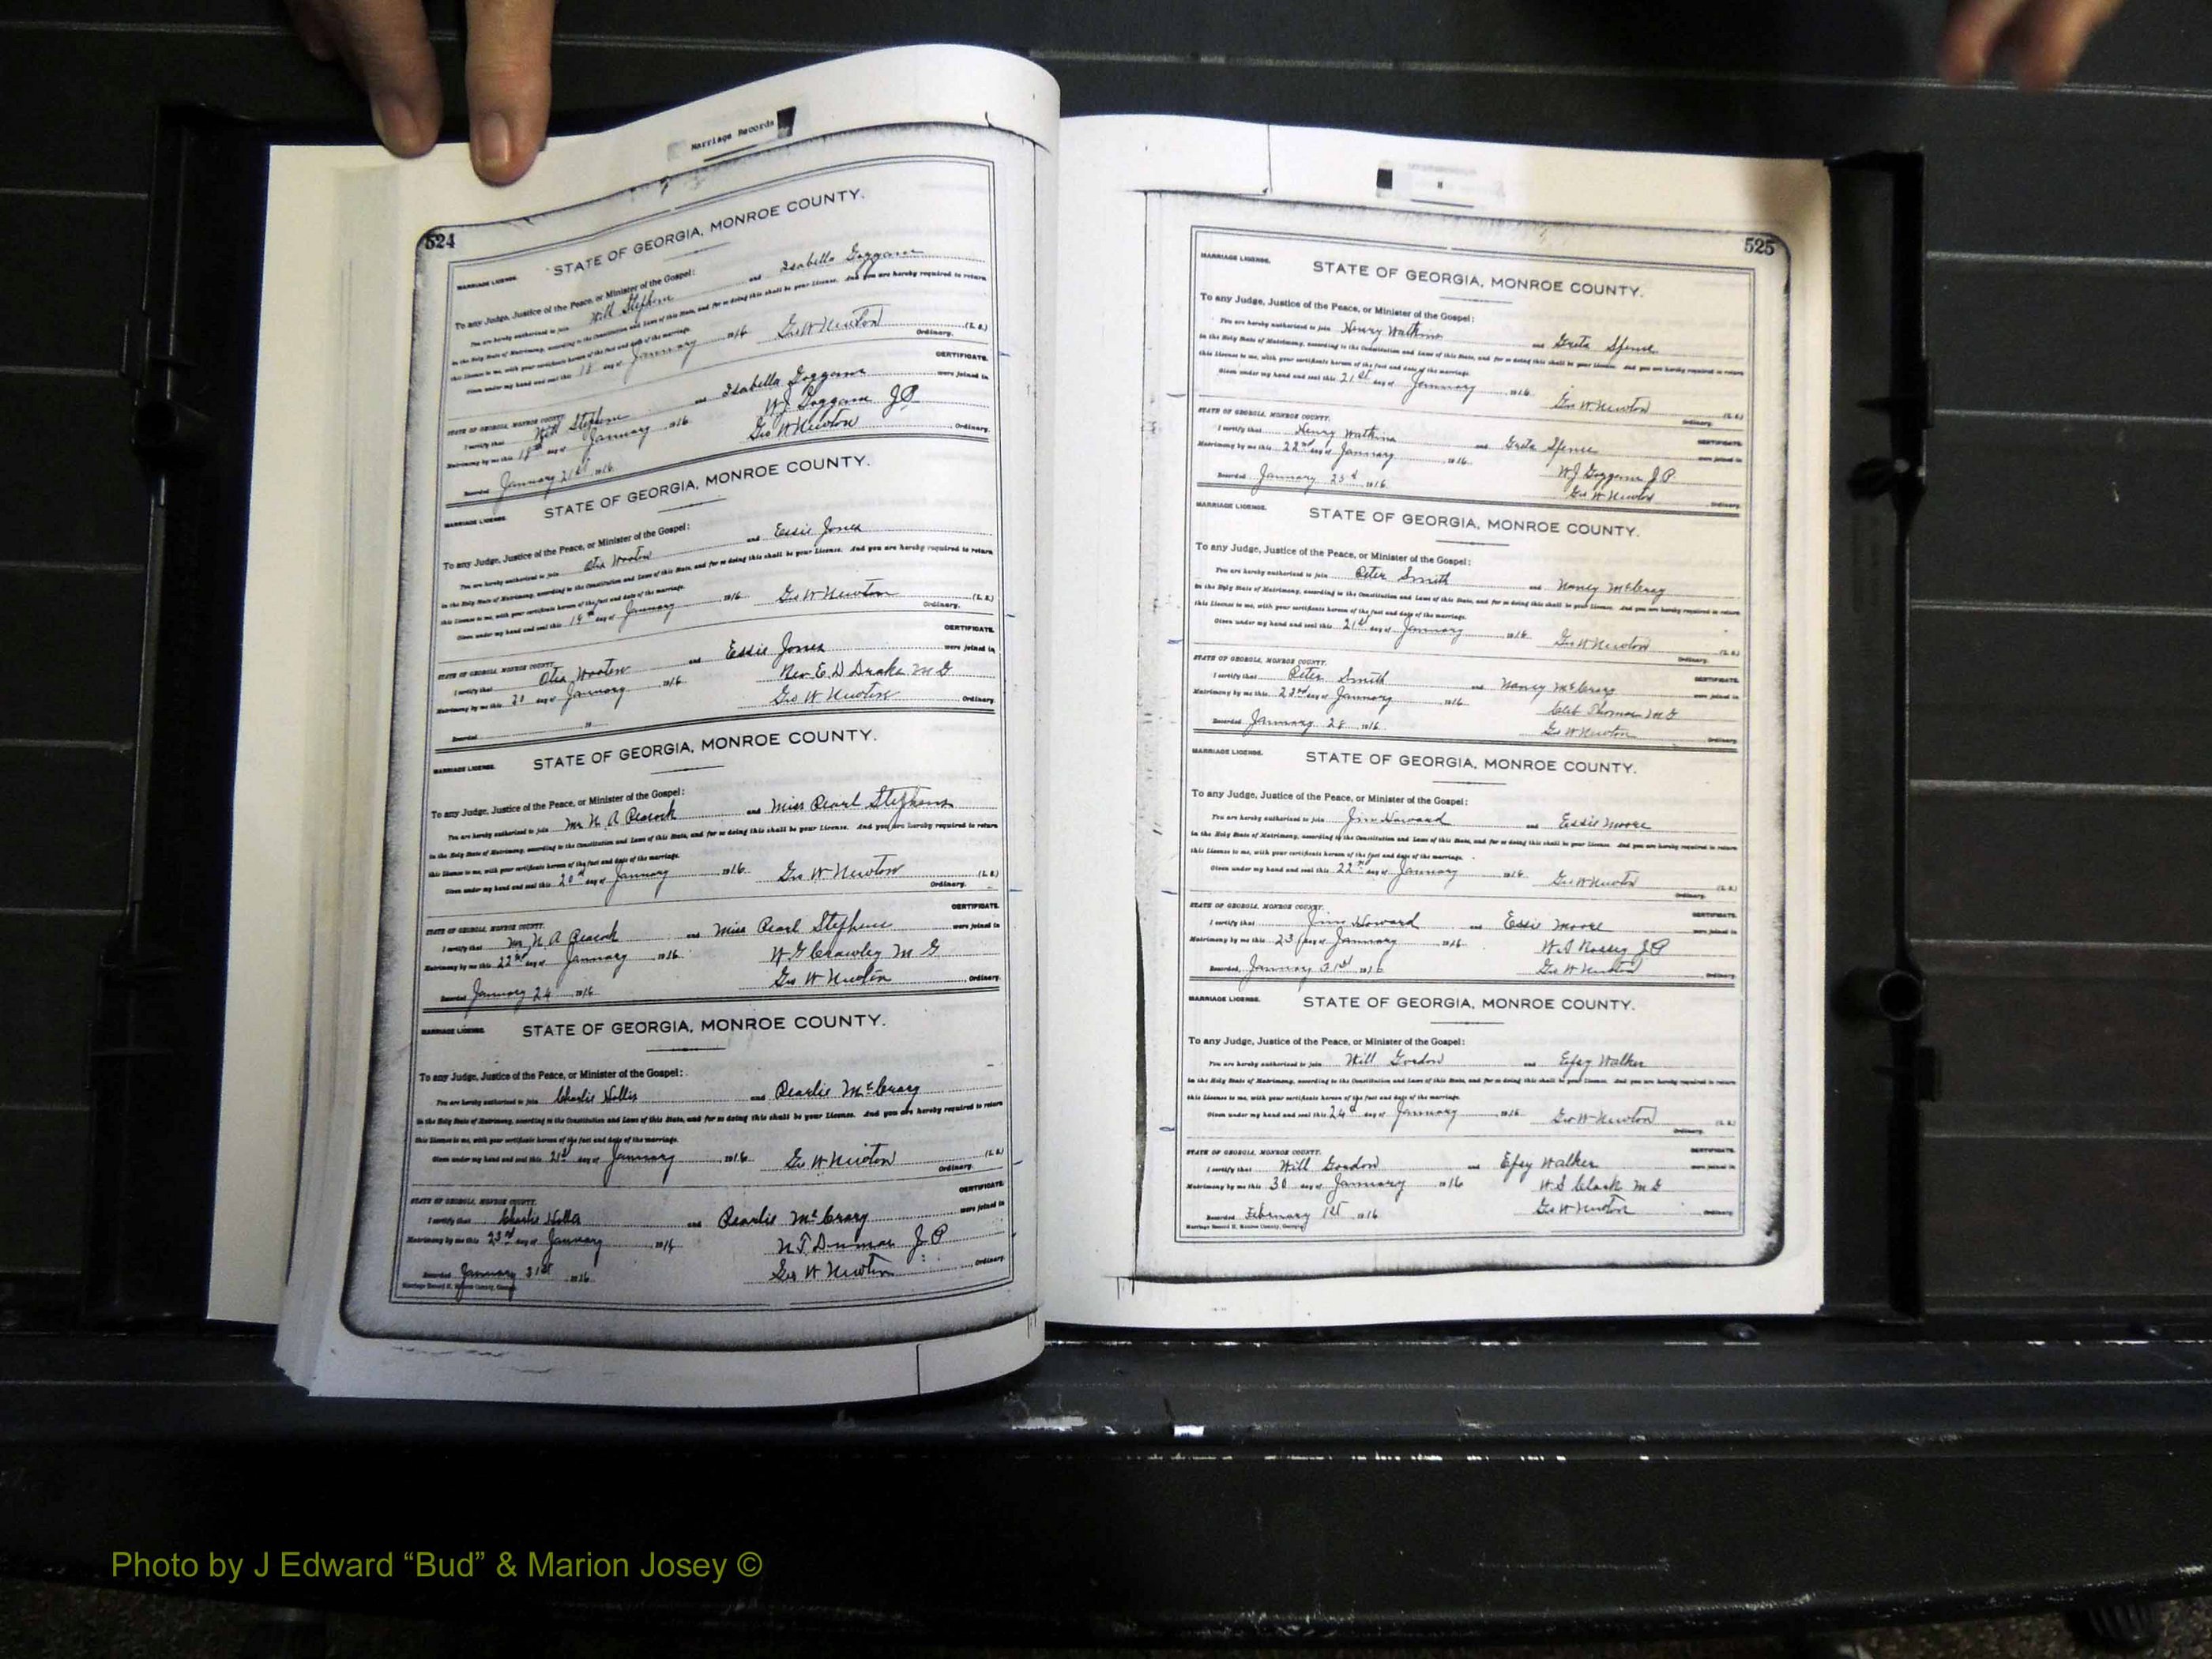 Marriage Records
524
STATE OF GEORGIA, MONROE COUNTY.
MARRIAGE LICENSE.
To any Judge, Justice of the Peace, or Minister of the Gospel:
You are hereby authorized to join Will Stephens and Isabella Goggans
in the Holy State of Matrimony, according to the Constitution and Laws of this State, and for so doing this shall be your License. And you are hereby required to return
this License to me, with your certificate hereon of the fact and date of the marriage.
Given under my hand and seal this 18 day of January 1916 Geo W Newton (L. S.)
Ordinary.
CERTIFICATE.
STATE OF GEORGIA, MONROE COUNTY.
I certify that Will Stephens and Isabella Goggans were joined in
Matrimony by me this 18th day of January 1916 W J Goggans J P
Recorded January 21st 1916 Geo W Newton Ordinary.
STATE OF GEORGIA, MONROE COUNTY.
MARRIAGE LICENSE.
To any Judge, Justice of the Peace, or Minister of the Gospel:
You are hereby authorized to join Otis Wooten and Essie Jones
in the Holy State of Matrimony, according to the Constitution and Laws of this State, and for so doing this shall be your License. And you are hereby required to return
this License to me, with your certificate hereon of the fact and date of the marriage.
Given under my hand and seal this 19th day of January 1916 Geo W Newton (L. S.)
Ordinary.
CERTIFICATE.
STATE OF GEORGIA, MONROE COUNTY.
I certify that Otis Wooten and Essie Jones were joined in
Matrimony by me this 20 day of January 1916 Rev E D Drake M G
Geo W Newton Ordinary
Recorded 19
STATE OF GEORGIA, MONROE COUNTY.
MARRIAGE LICENSE.
To any Judge, Justice of the Peace, or Minister of the Gospel:
You are hereby authorized to join Mr N A Peacock and Miss Pearl Stephens
in the Holy State of Matrimony, according to the Constitution and Laws of this State, and for so doing this shall be your License. And you are hereby required to return
this License to me, with your certificate hereon of the fact and date of the marriage.
Given under my hand and seal this 20th day of January 1916 Geo W Newton (L. S.)
Ordinary.
CERTIFICATE.
STATE OF GEORGIA, MONROE COUNTY.
I certify that Mr N A Peacock and Miss Pearl Stephens were joined in
Matrimony by me this 22nd day of January 1916 W G Crawley M G
Recorded January 24 1916 Geo W Newton Ordinary.
MARRIAGE LICENSE. STATE OF GEORGIA, MONROE COUNTY.
To any Judge, Justice of the Peace, or Minister of the Gospel:
You are hereby authorized to join Charlie Hollis and Pearlie McCrary
in the Holy State of Matrimony, according to the Constitution and Laws of this State, and for so doing this shall be your License. And you are hereby required to return
this License to me, with your certificate hereon of the fact and date of the marriage.
Given under my hand and seal this 21st day of January 1916 Geo W Newton (L. S.)
Ordinary.
CERTIFICATE.
STATE OF GEORGIA, MONROE COUNTY.
I certify that Charlie Hollis and Pearlie McCrary were joined in
Matrimony by me this 23rd day of January 1916 J P
Recorded January 31st 1916 Geo W Newton Ordinary.
Marriage Record H, Monroe County, Georgia
525
MARRIAGE LICENSE. STATE OF GEORGIA, MONROE COUNTY.
To any Judge, Justice of the Peace, or Minister of the Gospel:
You are hereby authorized to join Henry Watkins and Greta Spence
in the Holy State of Matrimony, according to the Constitution and Laws of this State, and for so doing this shall be your License. And you are hereby required to return
this License to me, with your certificate hereon of the fact and date of the marriage.
Given under my hand and seal this 21st day of January 1916 Geo W Newton (L. S.)
Ordinary.
STATE OF GEORGIA, MONROE COUNTY. CERTIFICATE.
I certify that Henry Watkins and Greta Spence were joined in
Matrimony by me this 22nd day of January 1916 W J Goggans J P
Recorded January 25th 1916 Geo W Newton Ordinary.
MARRIAGE LICENSE. STATE OF GEORGIA, MONROE COUNTY.
To any Judge, Justice of the Peace, or Minister of the Gospel:
You are hereby authorized to join Peter Smith and Nancy McCrary
in the Holy State of Matrimony, according to the Constitution and Laws of this State, and for so doing this shall be your License. And you are hereby required to return
this License to me, with your certificate hereon of the fact and date of the marriage.
Given under my hand and seal this 21st day of January 1916 Geo W Newton (L. S.)
Ordinary.
STATE OF GEORGIA, MONROE COUNTY. CERTIFICATE.
I certify that Peter Smith and Nancy McCrary were joined in
Matrimony by me this 23rd day of January 1916 Thomas M G
Recorded January 28 1916 Geo W Newton Ordinary.
MARRIAGE LICENSE. STATE OF GEORGIA, MONROE COUNTY.
To any Judge, Justice of the Peace, or Minister of the Gospel:
You are hereby authorized to join Jim Howard and Essie Moore
in the Holy State of Matrimony, according to the Constitution and Laws of this State, and for so doing this shall be your License. And you are hereby required to return
this License to me, with your certificate hereon of the fact and date of the marriage.
Given under my hand and seal this 22nd day of January 1916 Geo W Newton (L. S.)
Ordinary.
STATE OF GEORGIA, MONROE COUNTY. CERTIFICATE.
I certify that Jim Howard and Essie Moore were joined in
Matrimony by me this 23 day of January 1916 J P
Recorded January 31st 1916 Geo W Newton Ordinary.
MARRIAGE LICENSE. STATE OF GEORGIA, MONROE COUNTY.
To any Judge, Justice of the Peace, or Minister of the Gospel:
You are hereby authorized to join Will Gordon and Epsy Walker
in the Holy State of Matrimony, according to the Constitution and Laws of this State, and for so doing this shall be your License. And you are hereby required to return
this License to me, with your certificate hereon of the fact and date of the marriage.
Given under my hand and seal this 24th day of January 1916 Geo W Newton (L. S.)
Ordinary.
STATE OF GEORGIA, MONROE COUNTY. CERTIFICATE.
I certify that Will Gordon and Epsy Walker were joined in
Matrimony by me this 30 day of January 1916 W S Clark M G
Recorded February 1st 1916 Geo W Newton Ordinary.
Marriage Record H, Monroe County, Georgia
Photo by J Edward “Bud” & Marion Josey ©